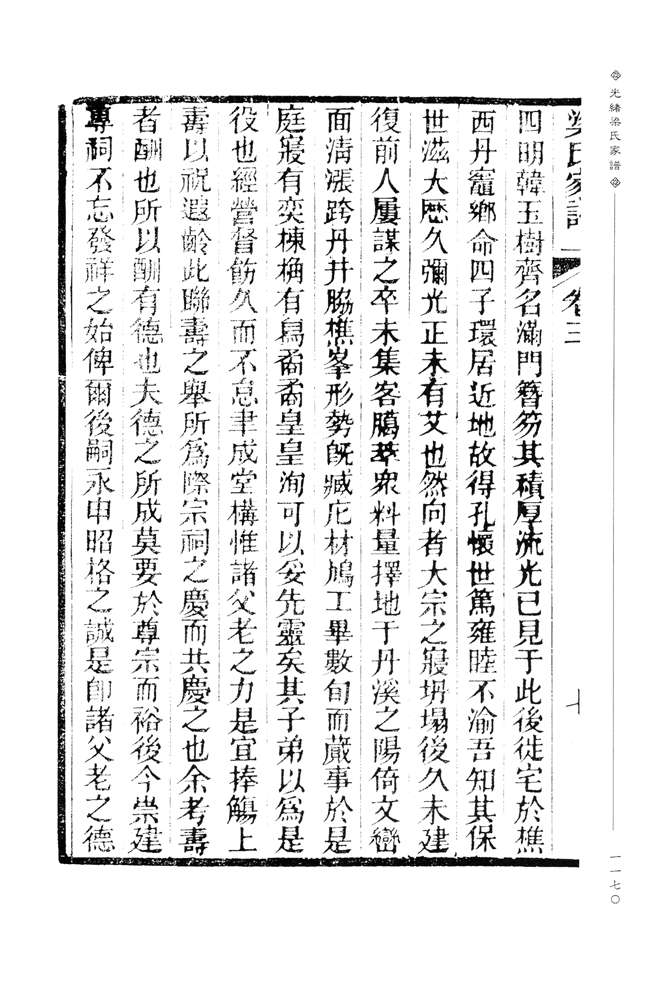 光緒梁氏家譜
一一七〇
梁氏家譜 卷三 七
四明韓玉樹齊名滿門簪笏其積厚流光已見于此後徙宅於樵
西丹竈鄉命四子環居近地故得孔懷世篤雍睦不渝吾知其保
世滋大歷久彌光正未有艾也然向者大宗之寢坍塌後久未建
復前人屢謀之卒未集客臈萃衆料量擇地于丹溪之陽倚文巒
面清漲跨丹井脇樵峯形勢旣臧庀材鳩工畢數旬而蕆事於是
庭寢有奕棟桷有舃矞矞皇皇洵可以妥先靈矣其子弟以爲是
役也經營督飭久而不怠聿成堂構惟諸父老之力是宜捧觴上
壽以祝遐齡此聯壽之舉所爲際宗祠之慶而共慶之也余考壽
者酬也所以酬有德也夫德之所成莫要於尊宗而裕後今崇建
專祠不忘發祥之始俾爾後嗣永申昭格之誠是卽諸父老之德